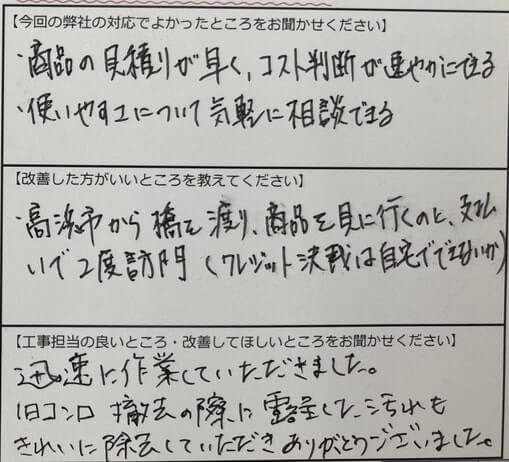 【今回の弊社の対応でよかったところをお聞かせください】
・商品の見積りが早く、コスト判断が速やかにできる
・使いやすエについて気軽に相談できる
【改善した方がいいところを教えてください】
・高浜市から橋を渡り、商品を見に行くのと、支払
いで2度訪問(クレジット決裁は自宅でできないか)
【工事担当の良いところ・改善してほしいところをお聞かせください】
迅速に作業していただきました。
旧コンロ撤去の際に露呈した汚れも
きれいに除去していただきありがとうございました。